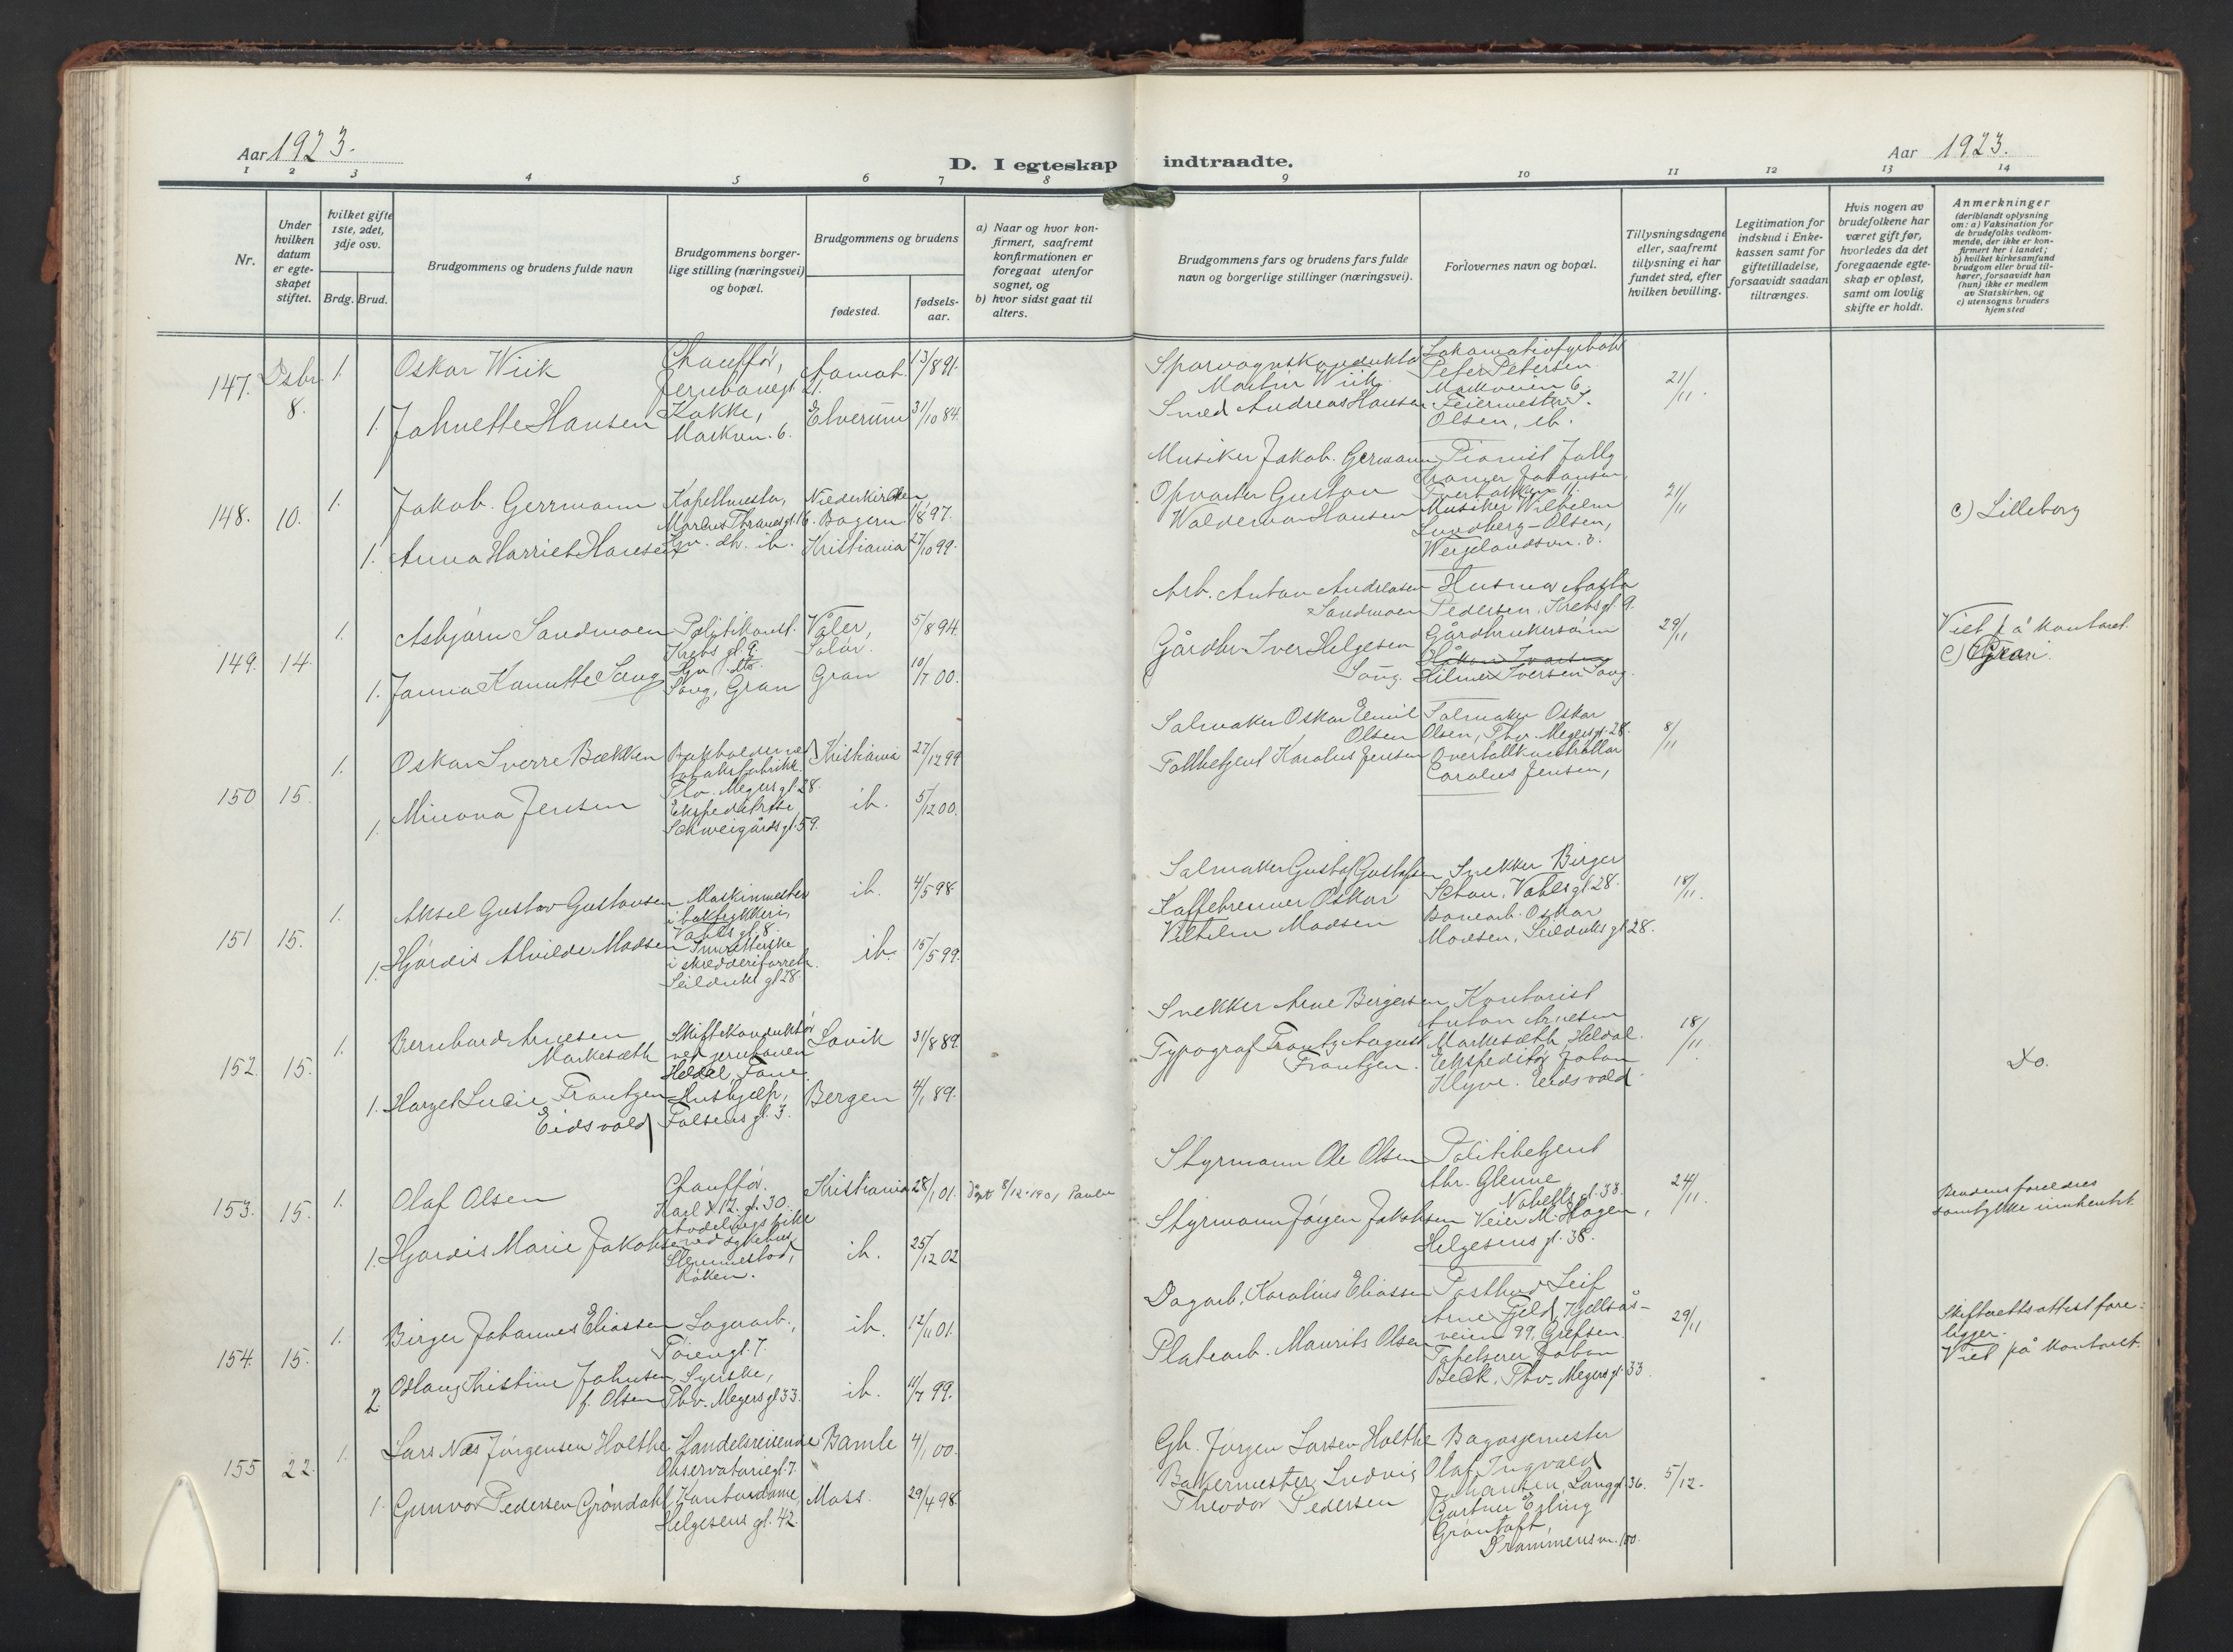 Aar 1923.
D. I egteskap indtraadte.
Aar 1923.
1 2 3 4 5 6 7 8 9 10 11 12 13 14
Nr.
Under hvilken datum er egteskapet stiftet.
hvilket gifte 1ste, 2det, 3dje osv.
Brdg. Brud.
Brudgommens og brudens fulde navn
Brudgommens borgerlige stilling (næringsvei) og bopæl.
Brudgommens og brudens
fødested.
fødselsaar.
a) Naar og hvor konfirmert, saafremt konfirmationen er foregaat utenfor sognet, og
b) hvor sidst gaat til alters.
Brudgommens fars og brudens fars fulde navn og borgerlige stillinger (næringsvei).
Forlovernes navn og bopæl.
Tillysningsdagene eller, saafremt tillysning ei har fundet sted, efter hvilken bevilling.
Legitimation for indskud i Enkekassen samt for giftetilladelse, forsaavidt saadan tiltrænges.
Hvis nogen av brudefolkene har været gift før, hvorledes da det foregaaende egteskap er opløst, samt om lovlig skifte er holdt.
Anmerkninger (deriblandt oplysning om: a) Vaksination for de brudefolks vedkommende, der ikke er konfirmert her i landet; b) hvilket kirkesamfund brudgom eller brud tilhører, forsaavidt han (hun) ikke er medlem av Statskirken, og c) utensogns bruders hjemsted
147. Dsbr. 8. 1. Oskar Wiik
Chauffør, Jernbanegt. 21.
Aamot. 13/8 91.
1. Jahnette Hansen
Kokke, Markvn. 6.
Elverum 31/10 84.
Sporvognskonduktør Martin Wiik.
Smed Andreas Hansen
Lokomotivfyrbøter Peter Petersen Markveien 6.
Feiermester J. Olsen, ib.
21/11.
148. 10. 1. Jakob Gerrmann
Kapellmester, Marcus Thranes gt. 16.
Niederkirchen Bayern. 1/8 97.
1. Anna Harriet Hansen
Kristiania 27/10 99.
Musiker Jakob Germann
Opvarter Gustav Waldemar Hansen
Pianist Jolly Kramer Johansen,
Musiker Wilhelm Lundberg-Olsen,
Wergelandsvn. 3.
21/11
c) Lilleborg
149. 14. 1. Asbjørn Sandmoen
Politikonst. Krebs gt. 9.
Våler, Solør. 5/8 94.
1. Janna Kanutte Saug
Saug, Gran
Gran 10/7 00.
Arb. Anton Andreasen Sandmoen
Gårdbr. Iver Helgesen Saug.
Pedersen, Krebsgt. 9.
Gårdbrukersønn
Hilmer Iversen Saug.
29/11
Viet på kontoret.
c) Gran.
150 15. 1. Oskar Sverre Bækken
Bokholder ved tobaksfabrikk. Thv. Meyers gt. 28.
Kristiania 27/12 99
1. Minona Jensen
Ekspeditrise, Schweigårds gt. 59.
ib. 5/12 00.
Salmaker Oskar Emil Olsen
Tollbetjent Karolus Jensen
Salmaker Oskar Olsen, Thv. Meyersgt. 28.
Overtollkontrollør Carolus Jensen,
8/11
151 15. 1. Aksel Gustav Gustavsen
Maskinmester i boktrykkeri, Vahls gt. 8.
ib. 4/5 98.
1. Hjørdis Alvilde Madsen
i skrædderiforretn. Seilduks gt. 28.
ib. 15/5 99.
Salmaker Gustaf Gustafsen
Kaffebrenner Oskar Vilhelm Madsen
Snekker Birger Vahls gt. 28.
Banearb. Oskar Madsen, Seilduks gt. 28.
18/11.
152. 15. 1. Bernhard Arnesen Markesæth
Skiftekonduktør ved jernbanen Heldal, Fane.
Lavik 31/8 89.
1. Harget Lucie Frantzen Eidsvold
Hushjelp, Falsens gt. 3.
Bergen 4/1 89.
Snekker Arne Birgersen
Typograf Frantz August Frantzen.
Kontorist Anton Arnesen Markesæth, Heldal.
Ekspeditør Johan Klyve. Eidsvold.
18/11.
Do.
153. 15. 1. Olaf Olsen
Chauffør. Karl d. 12. gt. 30.
Kristiania 28/1 01.
Døpt 8/12-1901 Paulus
1. Hjørdis Marie Jakobsen
avdelingspike ved sykehus, Slemmestad, Røken.
ib. 25/12 02
Styrmann Ole Olsen
Styrmann Jørgen Jakobsen
Politibetjent Abr. Glenne Nobels gt. 33.
Veier M. Hagen, Helgesens gt. 38.
24/11.
Brudens foreldres samtykke innhentet.
154. 15. 1. Birger Johannes Eliassen
Lagerarb., Tøiengt. 7.
ib. 12/11 01.
2. Oslaug Kristine Johnsen f. Olsen
Syerske, Thv. Meyers gt. 33.
ib. 11/7 99.
Dagarb. Karolius Eliassen
Platearb. Maurits Olsen
Postbud Leif Arne Fjeld, Kjelsåsveien 99, Grefsen.
Tapetserer Johan Beck, Thv. Meyers gt. 33
29/11
Skifterettsattest foreligger.
Viet på kontoret.
155 22. 1. Lars Næs Jørgensen Holthe
Handelsreisende Observatoriegt. 7.
Bamle 4/1 00.
1. Gunvor Pedersen Grøndahl
Kontordame, Helgesens gt. 42.
Moss. 29/4 98.
Gb. Jørgen Larsen Holthe
Bakermester Ludvig Theodor Pedersen
Bagasjemester Olaf Ingvald Johansen, Langgt. 36.
Gartner Erling Grøntoft, Drammensvn. 100.
5/12.